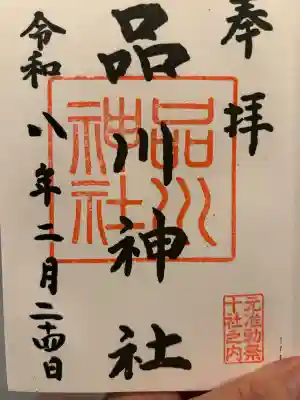 奉拝
品川神社
令和八年二月二十四日
品川
神社
元准勅祭
十社之内